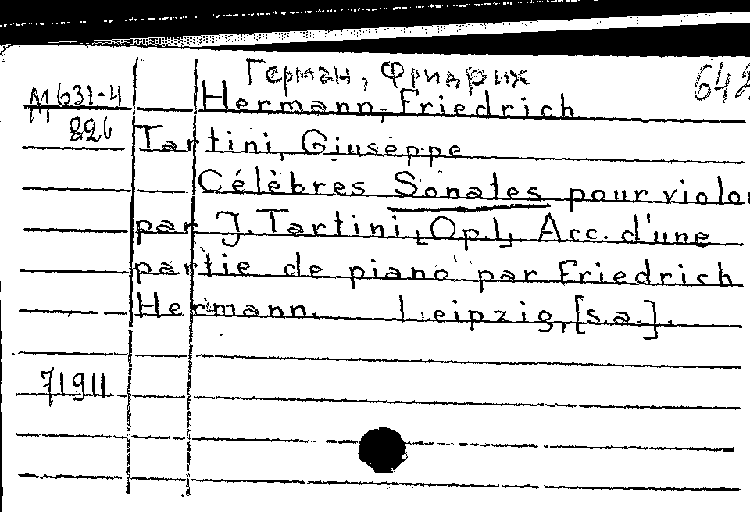 Герман, Фридрих
642
M 631-4
Hermann, Friedrich
826
Tartini, Giuseppe
Célèbres Sonates pour violon
par J. Tartini, Op. 1, Acc. d'une
partie de piano par Friedrich
Hermann. Leipzig, [s.a.].
71911